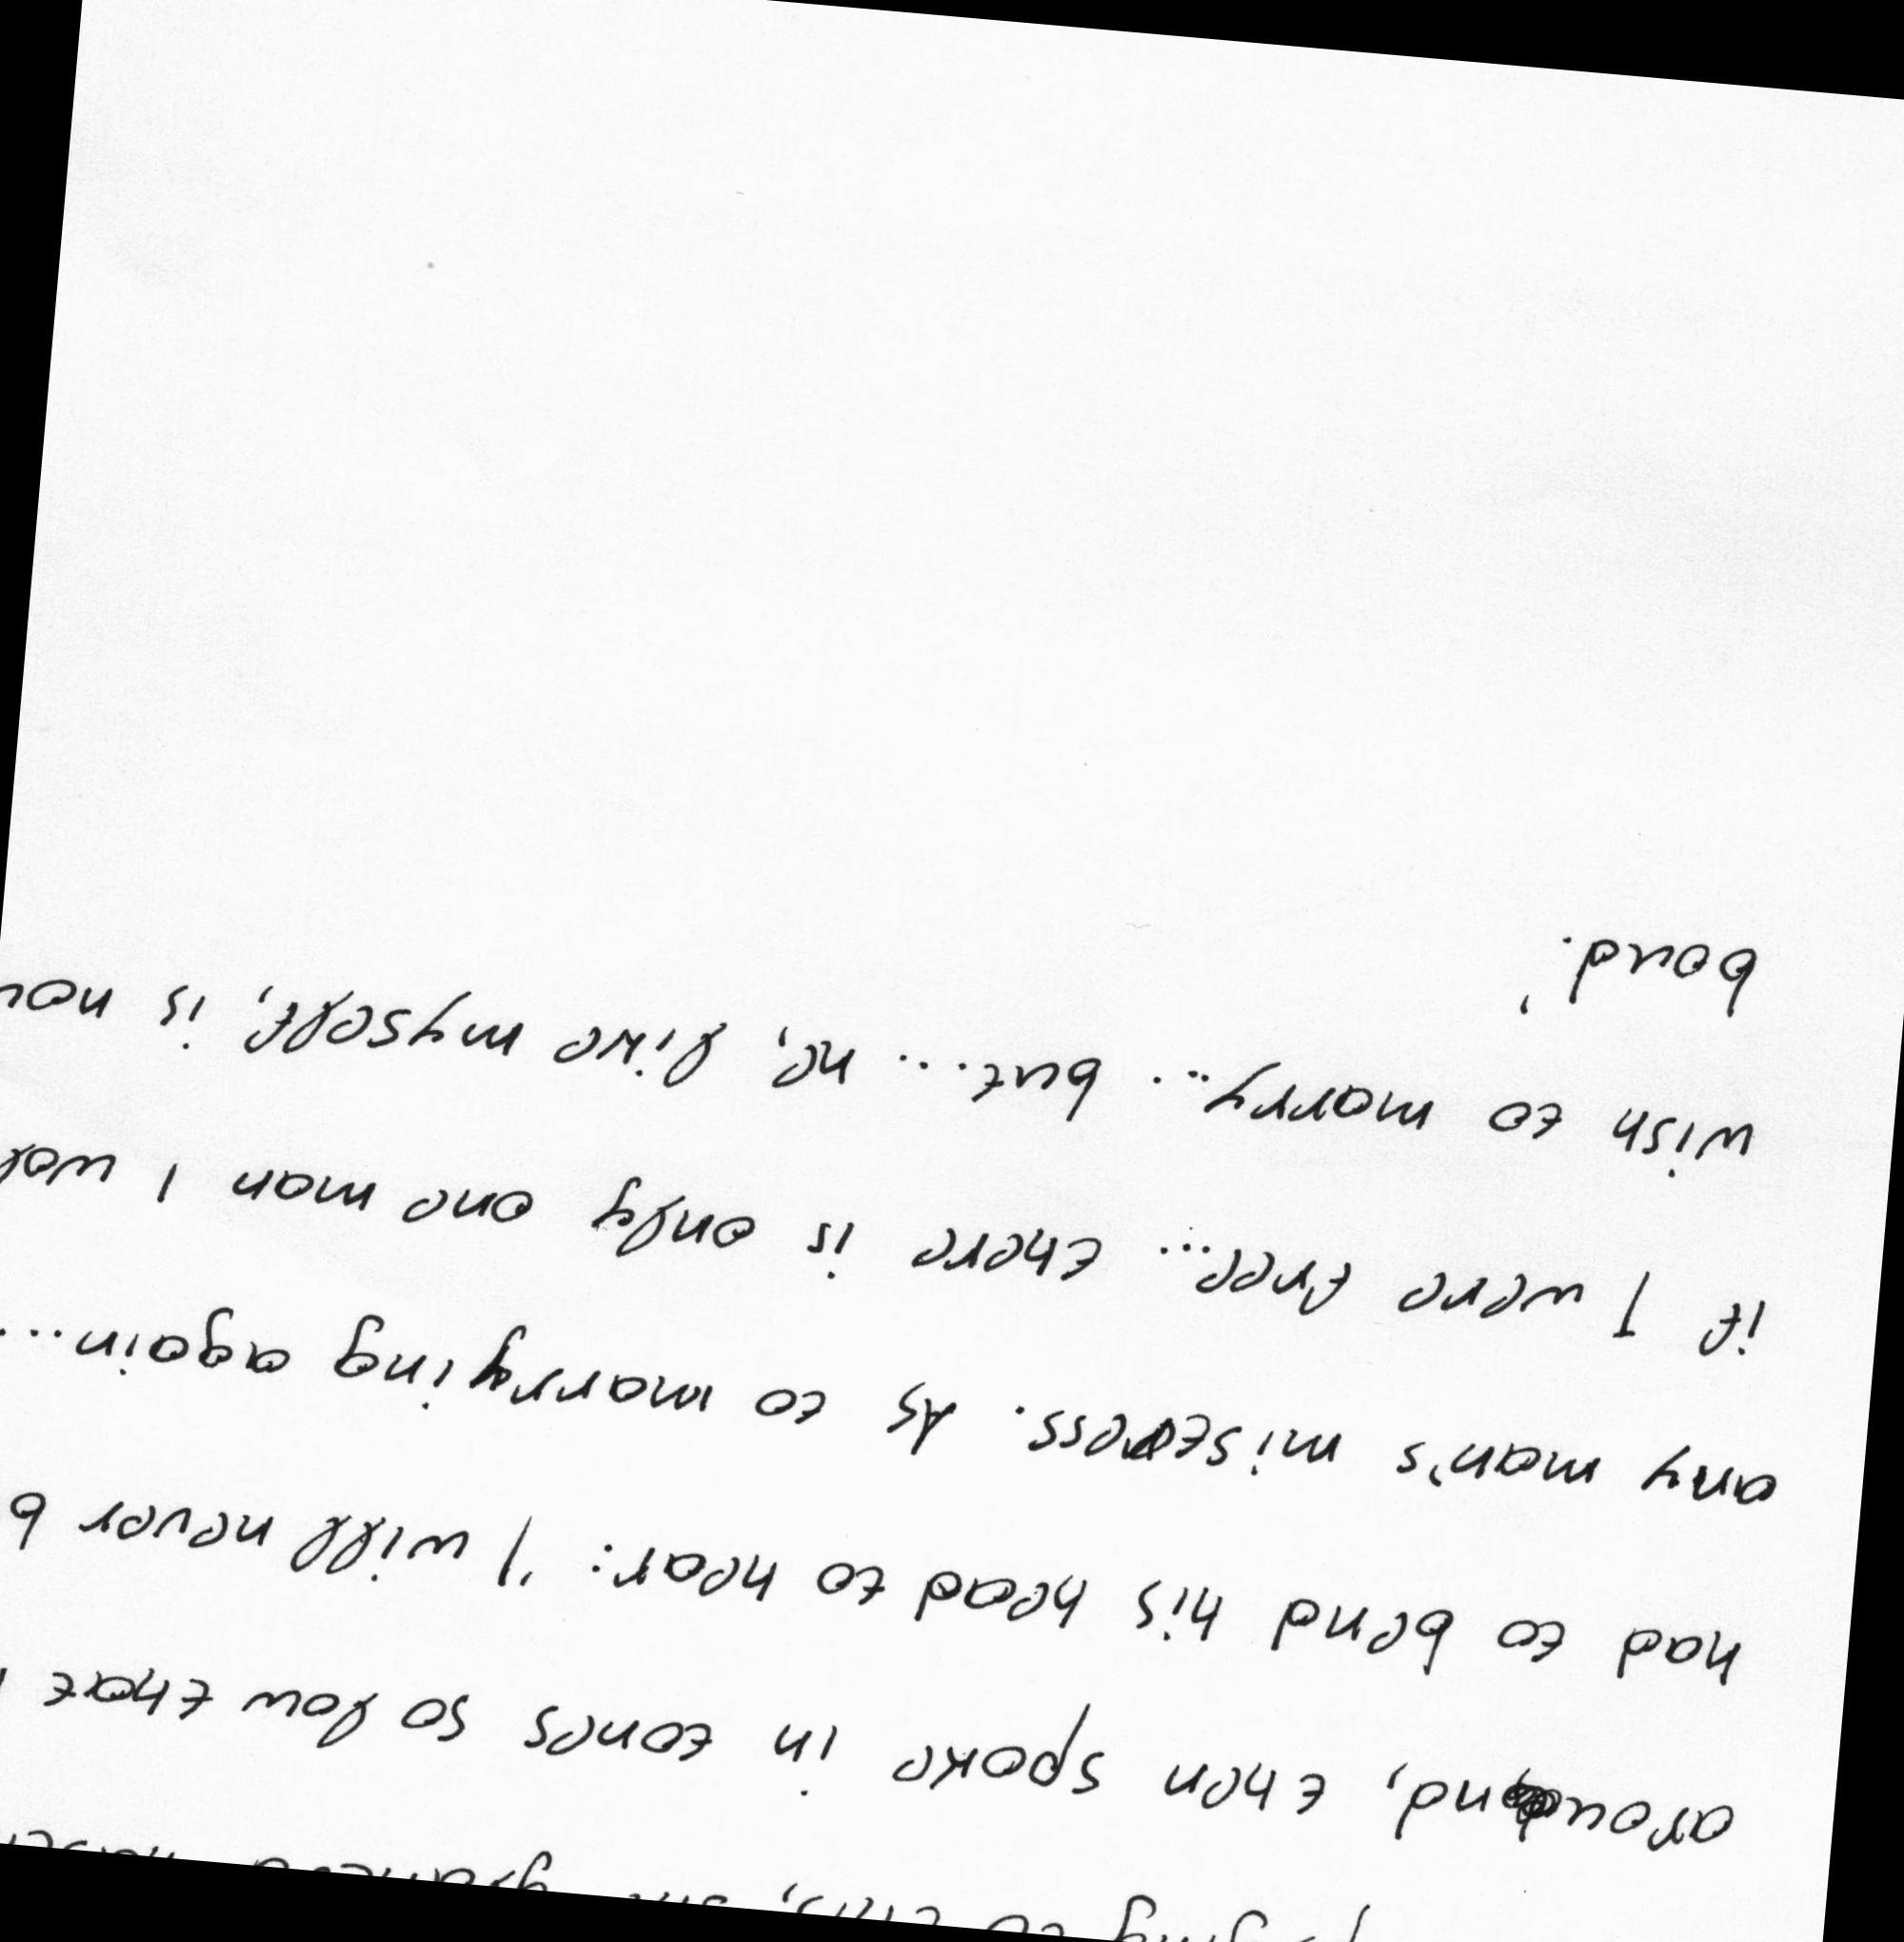 to this, she glanced
around, then spoke in tones so low that
had to bend his head to hear: 'I will never
any man's mistress. As to marrying again...
if I were free... there is only one man I
wish to marry... but... he, like myself, is
bond.'